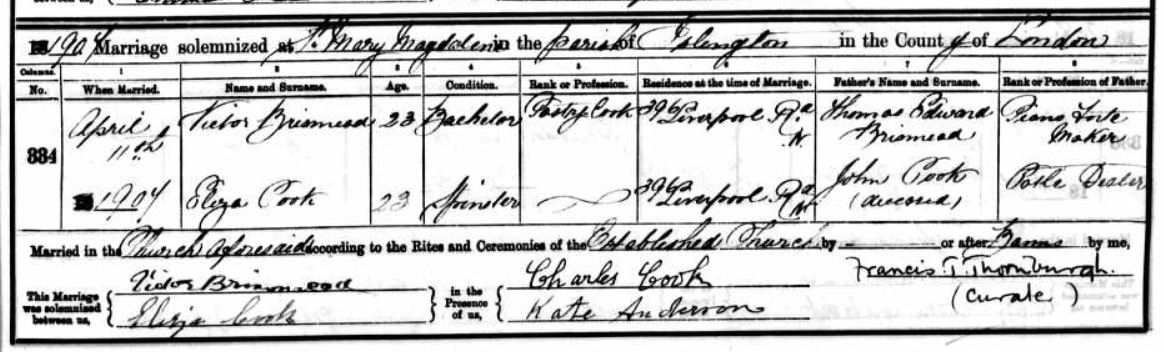 1907 Marriage solemnized at St. Mary Magdalene in the parish of Islington in the County of London
Columns. 1 2 3 4 5 6 7 8
No. When Married. Name and Surname. Age. Condition. Rank or Profession. Residence at the time of Marriage. Father's Name and Surname. Rank or Profession of Father.
884 April 11th 1907
Victor Brinsmead 23 Bachelor Pastry Cook 396 Liverpool Rd N. Thomas Edward Brinsmead Piano Forte Maker
Eliza Cook 23 Spinster 396 Liverpool Rd N. John Cook (deceased) Dealer
Married in the Church aforesaid according to the Rites and Ceremonies of the Established Church by or after Banns by me,
This Marriage was solemnized between us, Victor Brinsmead Eliza Cook in the Presence of us, Charles Cook Kate Anderson Francis T. Thornburgh. (Curate)